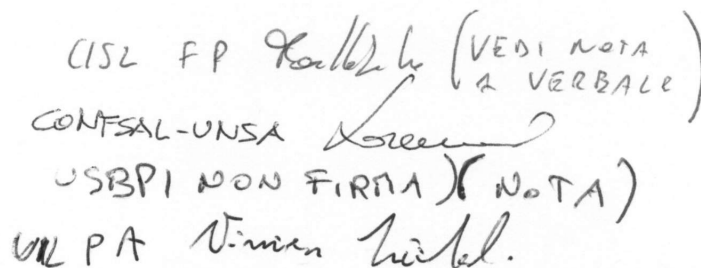 CISL FP (VEDI NOTA
A VERBALE)
CONFSAL-UNSA
USBPI NON FIRMA)(NOTA)
UIL PA